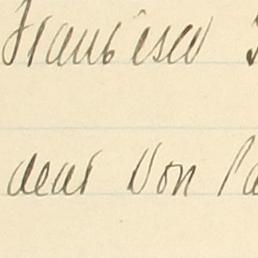 Francisco
dear Don Pa